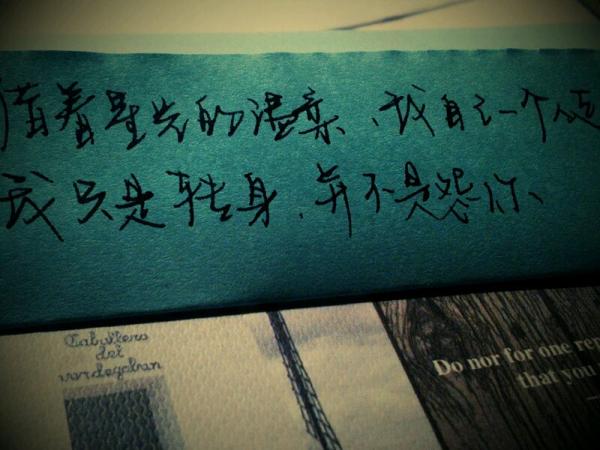 借着星光的温柔、我自己一个人走
我只是转身、并不是怨你、
Caballero
del
verdegaban
Do nor for one rep
that you